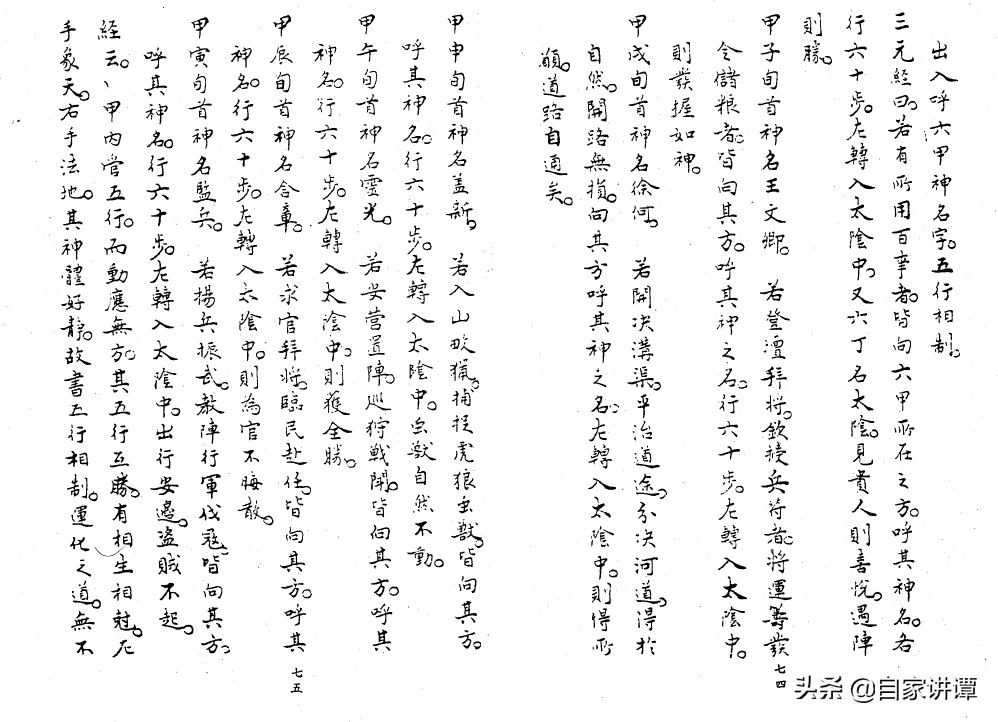 出入呼六甲神名字。五行相制。
三元經曰。若有所用百事者。皆向六甲所在之方。呼其神名。各
行六十步。左轉入太陰中。又六丁名太陰。見貴人則喜悅。遇陣
則勝。
甲子旬首神名王文卿。 若登壇拜將。欽授兵符者。將運籌發
令儲粮者。皆向其方。呼其神之名。行六十步。左轉入太陰中。
則發握如神。
甲戌旬首神名徐何。 若開決溝渠。平治道途。分決河道。得於
自然。開路無損。向其方呼其神之名。左轉入太陰中。則得所
願。道路自通矣。
七四
甲申旬首神名盖新。 若入山畋獵。捕捉虎狼虫獸。皆向其方。
呼其神名。行六十步。左轉入太陰中。虫獸自然不動。
甲午旬首神名靈光。 若安營置陣。巡狩戰開。皆向其方。呼其
神名。行六十步。左轉入太陰中。則獲全勝。
甲辰旬首神名含章。 若求官拜將。臨民赴任。皆向其方。呼其
神名。行六十步。左轉入太陰中。則為官不晦散。
甲寅旬首神名監兵。 若揚兵振武。教陣行軍伐寇。皆向其方。
呼其神名。行六十步。左轉入太陰中。出行安邊。盜賊不起。
經云。甲內營五行。而動應無方。其五行互勝。有相生相尅。左
手象天。右手法地。其神體好靜。故書五行相制。運化之道。無不
七五
头条 @自家讲谭